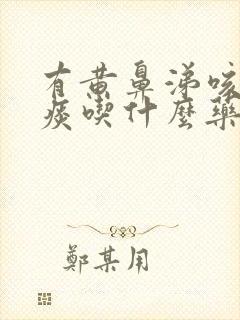 有黄鼻涕咳
痰喫什麼藥
鄭某用